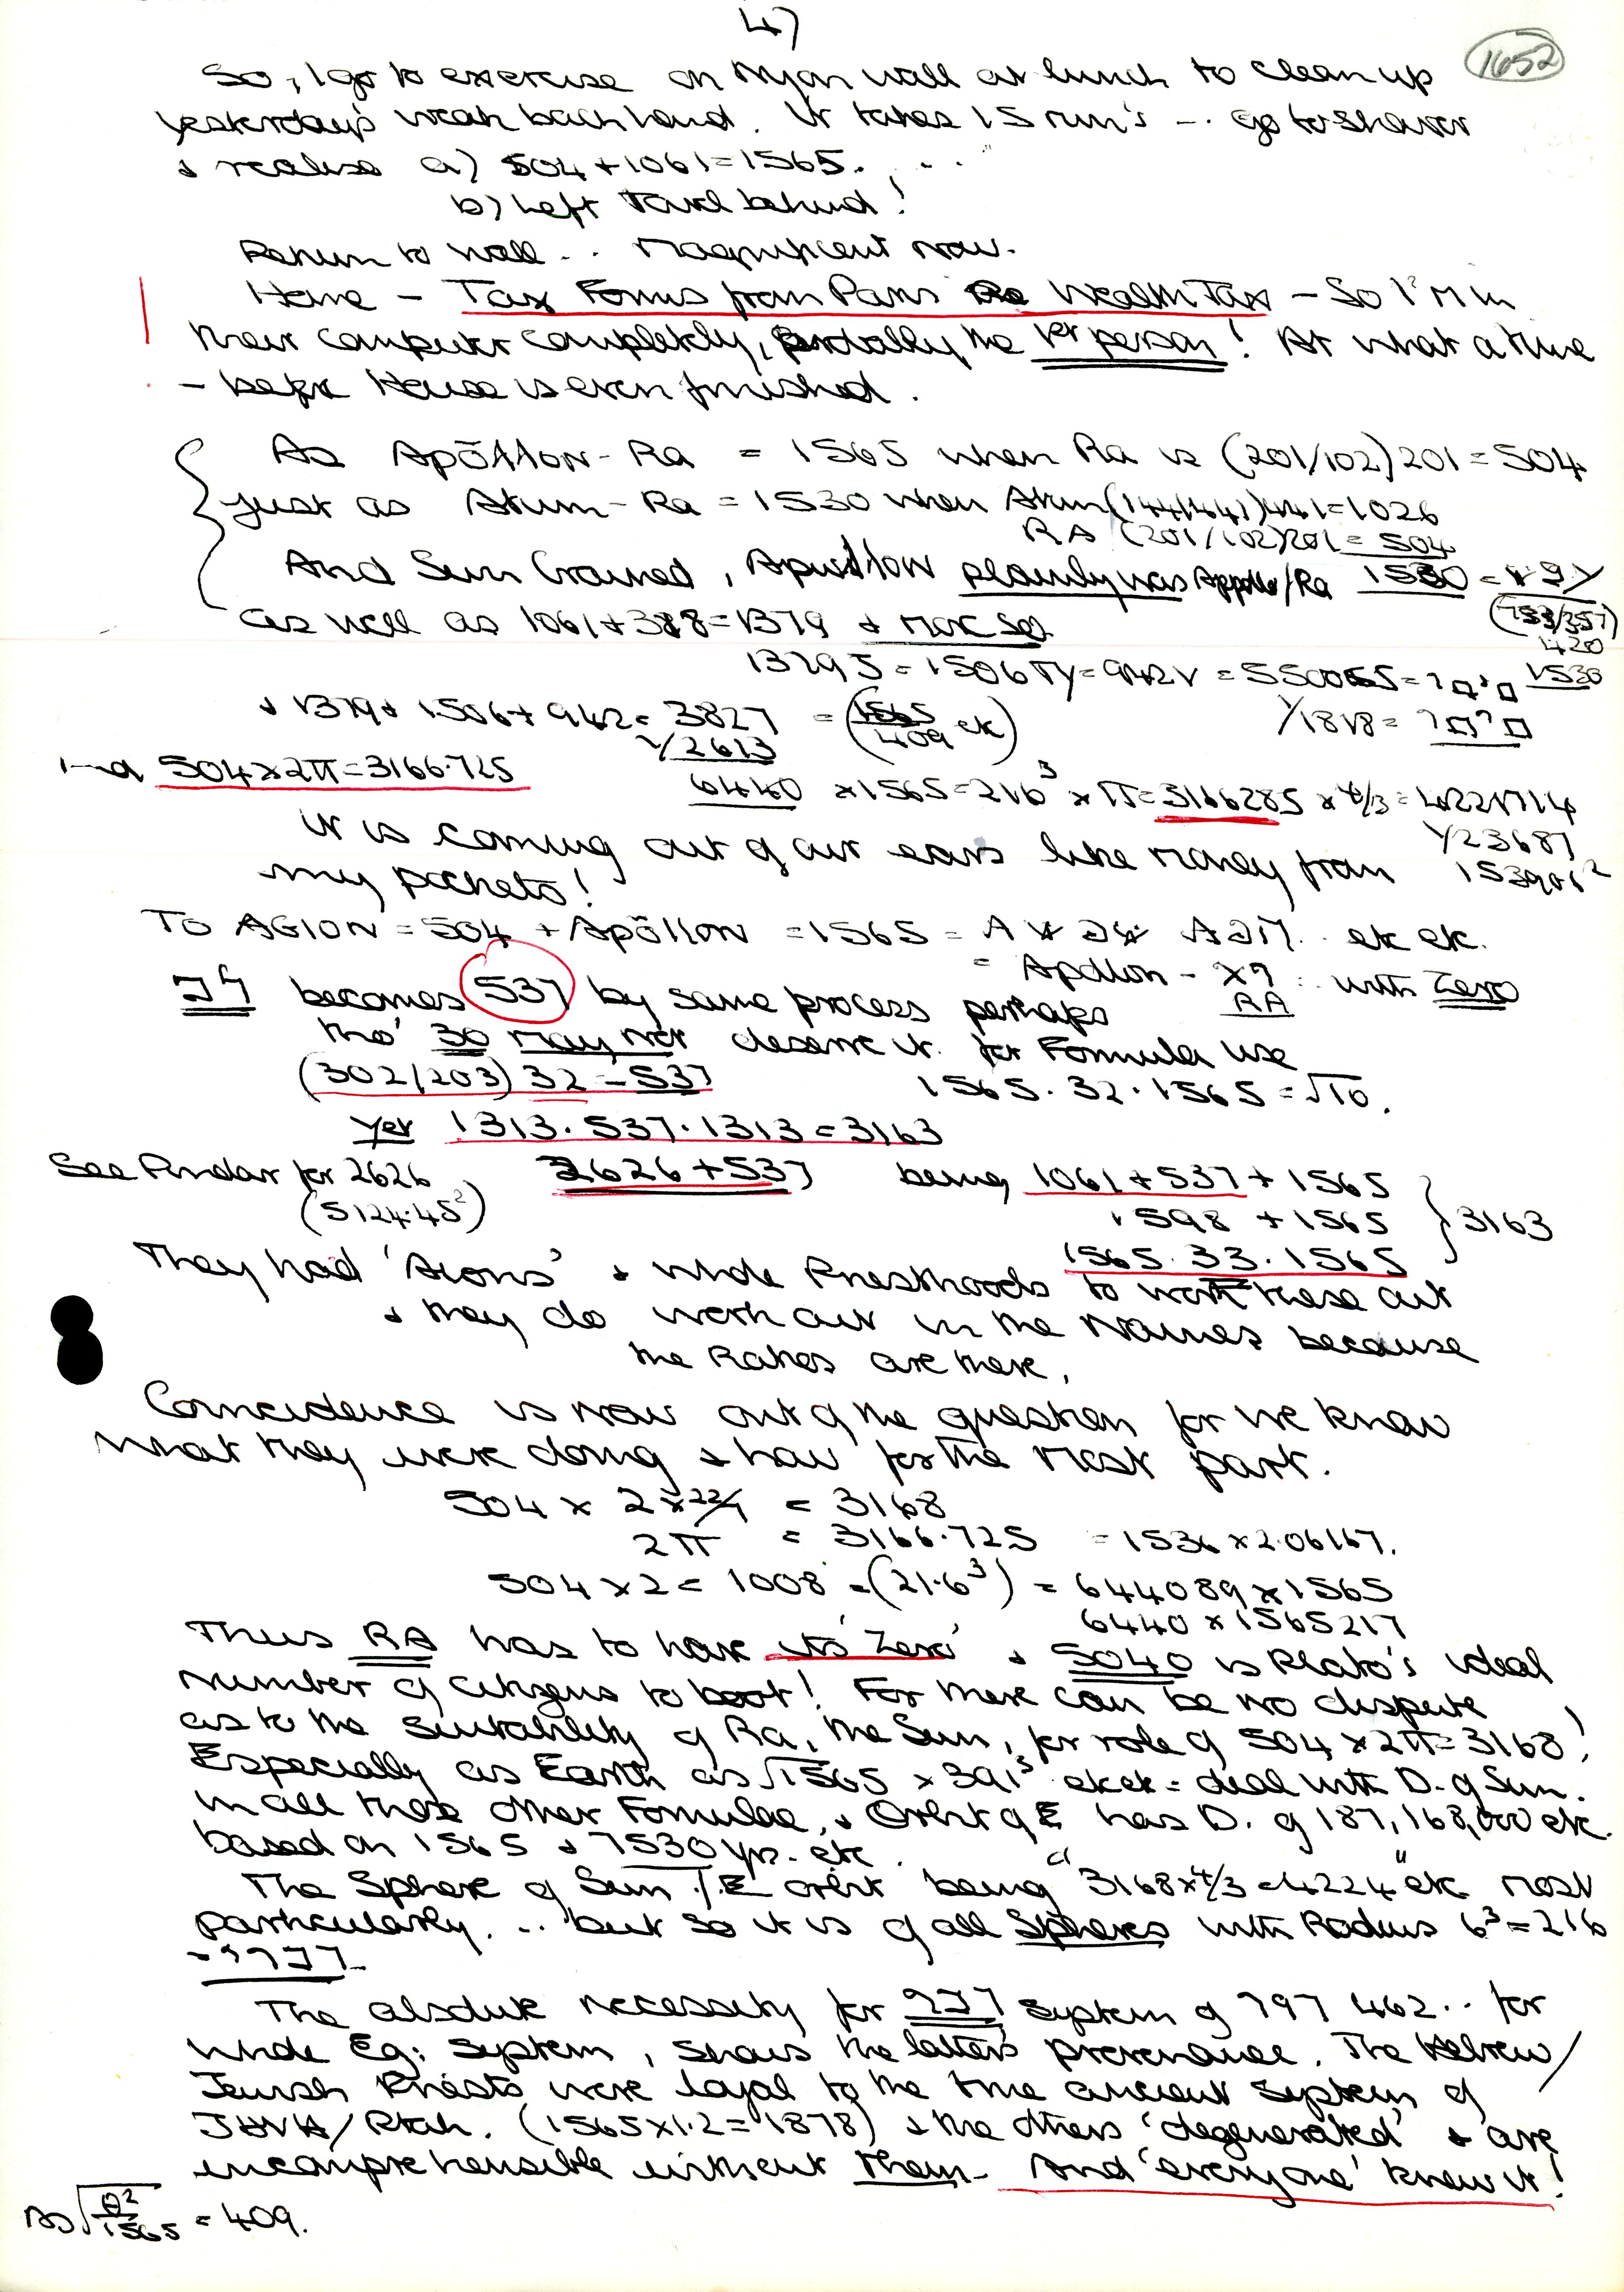 47
1652
So, I go to exercise on Nyon wall at lunch to clean up
yesterday's weak backhand. It takes 15 min's -. go to shower
& realise a) 504+1061=1565. . .
b) Left Towel behind!
Return to wall .. Magnificent now.
Home - Tax Forms from Paris Re Wealth Tax - So I'm in
their computer completely, probably the 1st person! At what a time
- before House is even finished.
As Apōllon-Ra = 1565 when Ra is (201/102)201=504
just as Atum-Ra = 1530 when Atum(144/441)441=1026
RA (201/102)201=504
And Sun Crowned, Apollon plainly was Appollo/Ra 1530
(753/357)
420
1530
as well as 1061+318=1379 &
13795=1506πy=942y=550065=
& 1379+1506+942=3827 = (1565/409 etc)
y/1818=
y/2613
504×2π=3166.725
6440 ×1565=216³×π=3166285×4/3=4221714
y/23687
153901²
It is coming out of our ears like money from
my pockets!
TO AGION=504 + Apōllon =1565 = etc etc.
= Apollon - with Zero
RA
becomes 537 by same process perhaps
tho' 30 may not deserve it. for Formula use
(302/203) 32=537
1565.32.1565=√10.
Yet 1313.537.1313=3163
See Pindar for 2626
(5124.45²)
2626+537 being 1061+537+1565
1598 +1565 } 3163
1565.33.1565
They had 'Aeons' & whole Priesthoods to work these out
& they do work out in the Names because
the Ratios are there.
Coincidence is now out of the question for we know
what they were doing & how for the most part.
504 × 2×22/7 = 3168
2π = 3166.725 =1536×2.06167.
504×2=1008=(21.6³)=644089×1565
6440×1565217
Thus RA has to have its 'Zero' & 5040 is Plato's ideal
number of citizens to boot! For there can be no dispute
as to the suitability of Ra, the Sun, for role of 504×2π=3168!
Especially as Earth as √1565 ×391³ etc etc = deal with D. of Sun.
in all those other Formulae, & Orbit of E has D. of 187,168,000 etc.
based on 1565 & 7530 yrs. etc.
The Sphere of Sun /E orbit being "3168×4/3=4224" etc most
particularly. .. but so it is of all Spheres with Radius 6³=216
The absolute necessity for system of 797 462.. for
whole Eg: system, shows the latter's provenance. The Hebrew/
Jewish Priests were loyal to the true ancient system of
JHVH/Ptah. (1565×1.2=1878) & the others 'degenerated' & are
incomprehensible without them - And 'everyone' knew it!
=409.